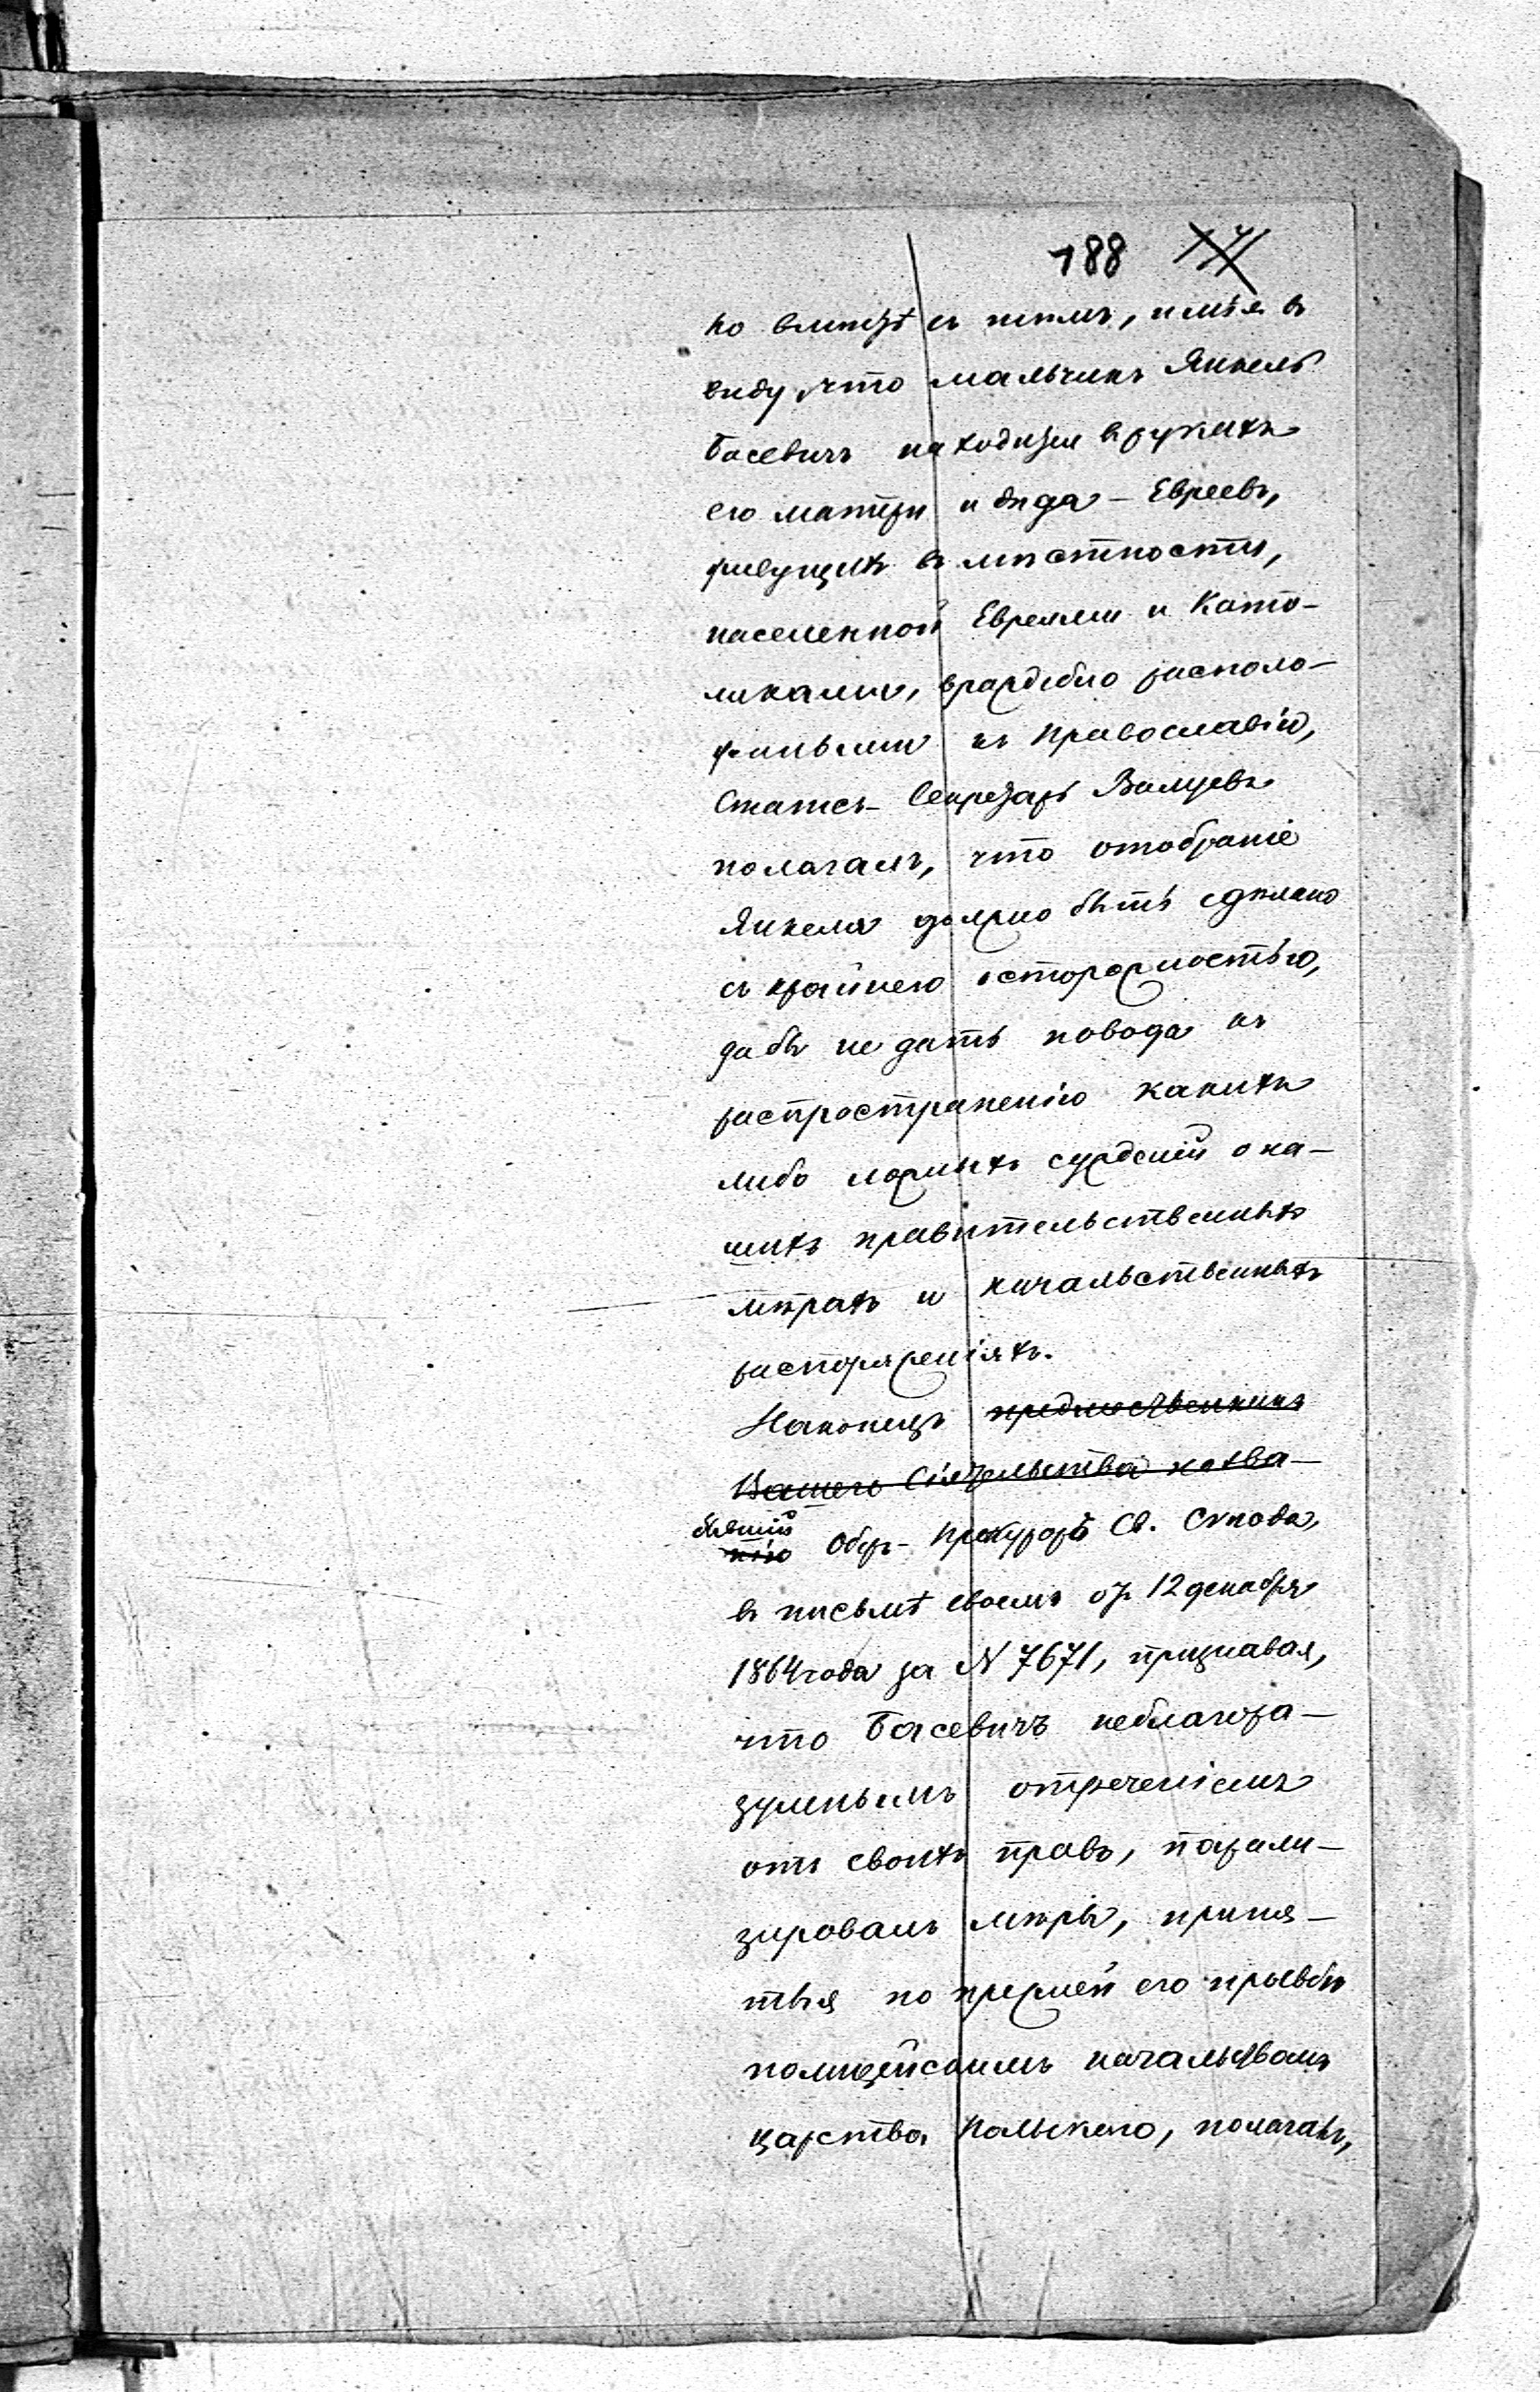 188 171
но вместѣ съ тѣмъ, имѣя въ
виду, что мальчикъ Янкель
Басевичъ находится въ рукахъ
его матери и дѣда - Евреевъ,
живущихъ въ мѣстности,
населенной Евреями и Като-
ликами, враждебно располо-
женными къ Православію,
Статсъ-Секретарь Валуевъ
полагалъ, что отобраніе
Янкеля должно быть сдѣлано
съ крайнею осторожностью,
дабы не дать повода къ
распространенію какихъ
либо ложныхъ сужденій о на-
шихъ правительственныхъ
мѣрахъ и начальственныхъ
распоряженіяхъ.
Наконецъ предшественникъ
Вашего Сіятельства
бывшій
Оберъ-Прокуроръ Св. Сѵнода,
въ письмѣ своемъ отъ 12 декабря
1864 года за N 7671, признавая,
что Басевичъ неблагора-
зумнымъ отреченіемъ
отъ своихъ правъ, парали-
зировалъ мѣры, приня-
тыя по прежней его прозьбѣ
полицейскимъ начальствомъ
царства Польскаго, полагалъ,